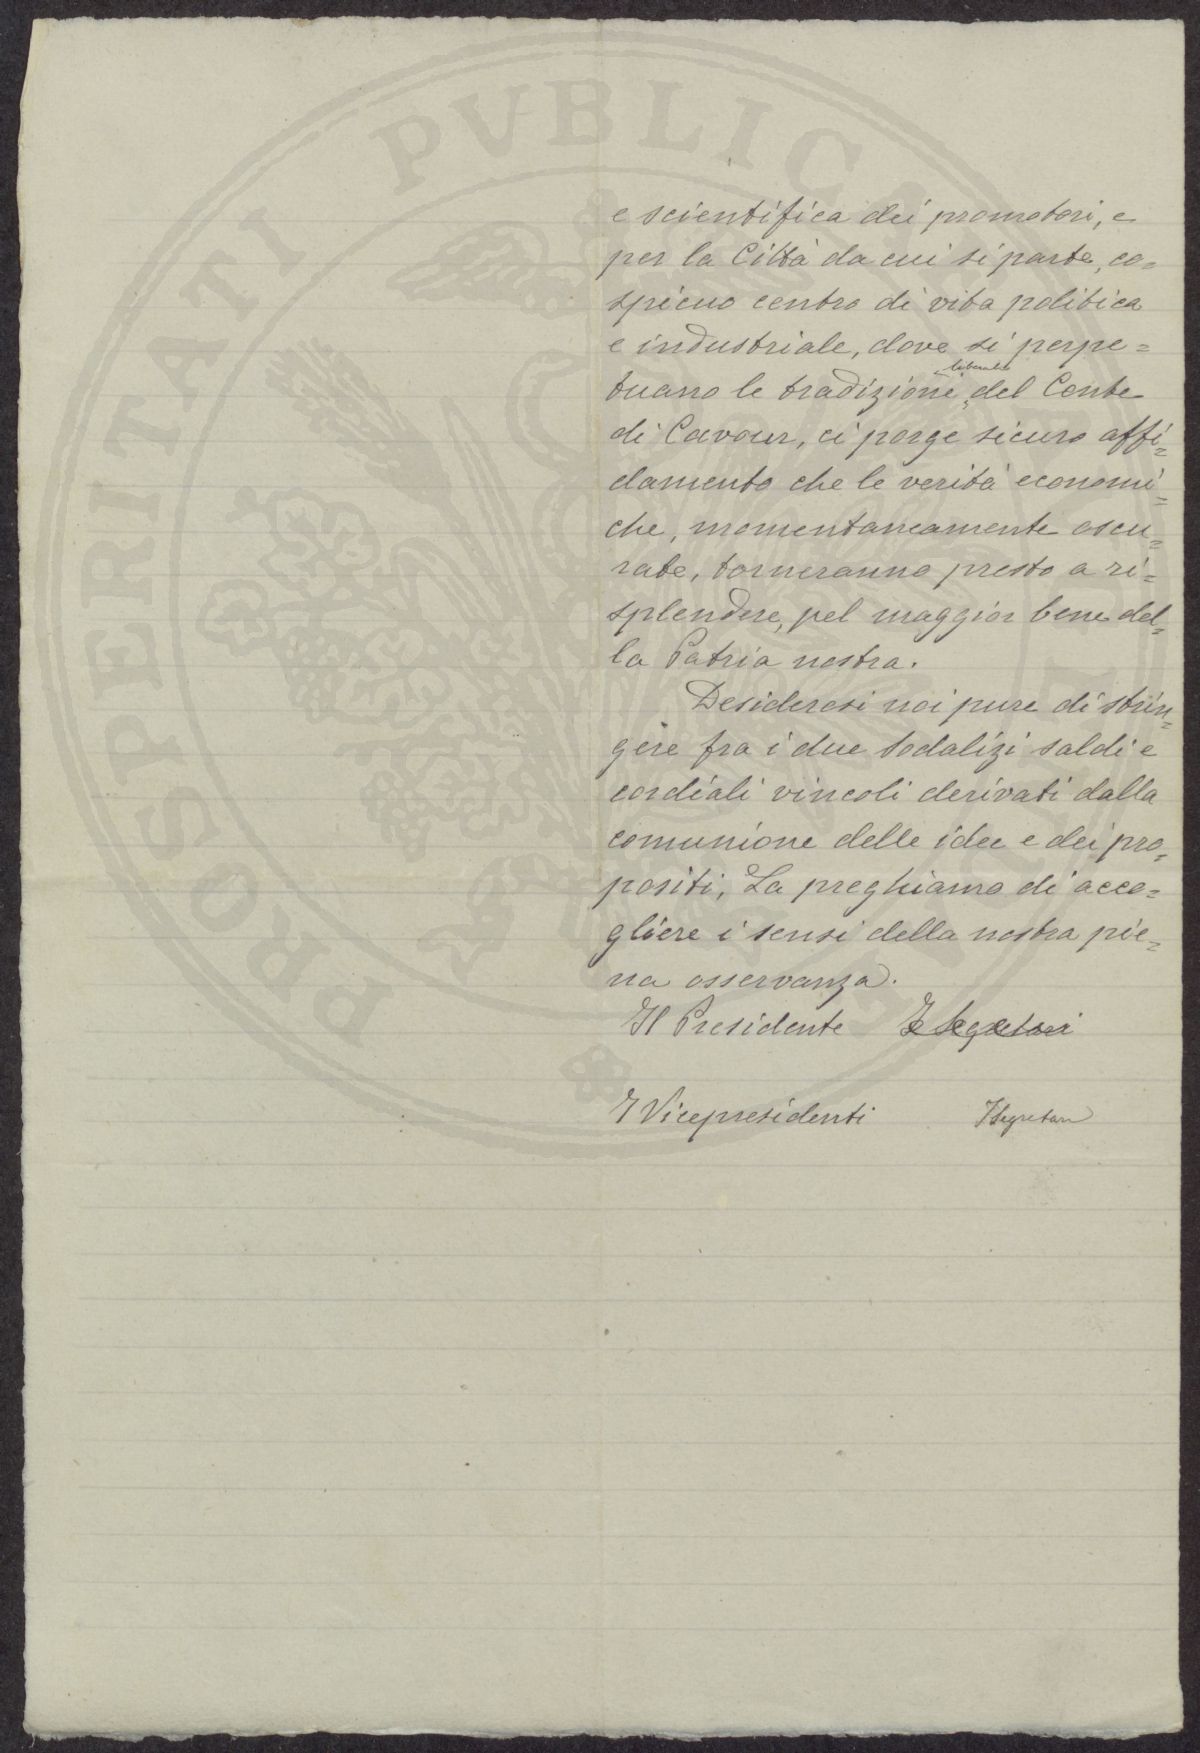 e scientifica dei promotori, e
per la Città da cui si parte, co=
spicuo centro di vita politica
e industriale, dove si perpe=
tuano le tradizioni liberali del Conte
di Cavour, ci porge sicuro affi=
damento che le verità economi=
che, momentaneamente oscu=
rate, torneranno presto a ri=
splendere, pel maggior bene del=
la Patria nostra.
Desiderosi noi pure di strin=
gere fra i due sodalizi saldi e
cordiali vincoli derivati dalla
comunione delle idee e dei pro=
positi, La preghiamo di acco=
gliere i sensi della nostra pie=
na osservanza.
Il Presidente I Segretari
I Vicepresidenti I Segretari
PROSPERITATI PVBLICAE